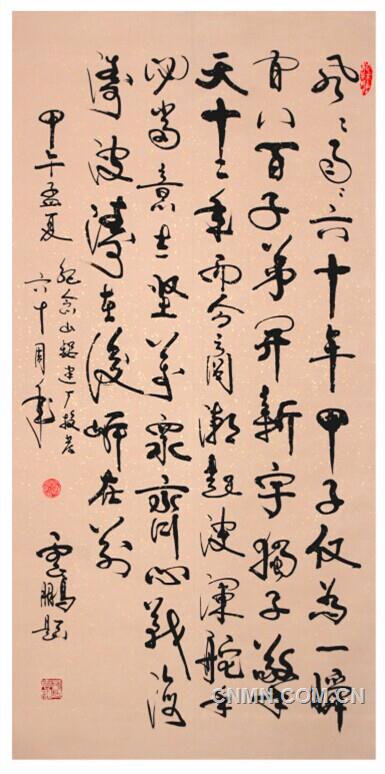 风々雨々六十年甲子仅为一瞬
八百子弟开新宇獨子擎
天十二年而今潮起波澜舵手
当意志坚万众齐心战海
涛波涛在後岸在前
甲午孟夏
纪念山铝建厂投产
六十周年
雲鵬题
CNMN.COM.CN